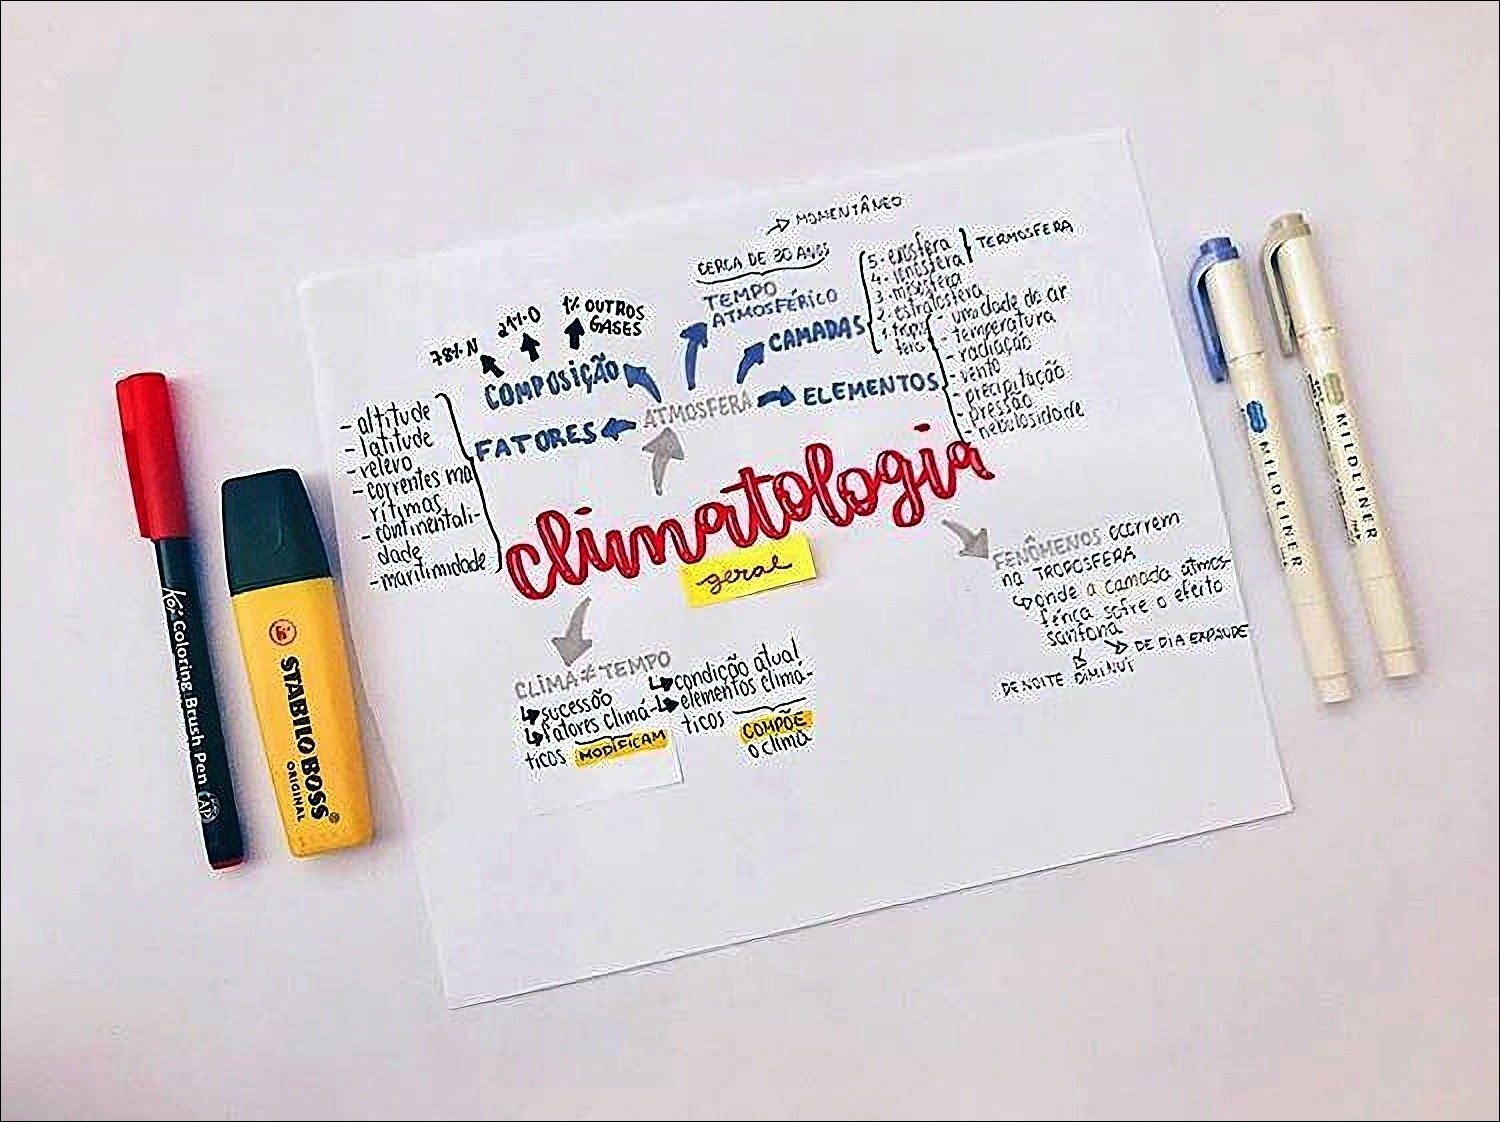 → MOMENTÂNEO
CERCA DE 30 ANOS
TEMPO
ATMOSFÉRICO
CAMADAS
5- exosfera
4- ionosfera
3- mesosfera
2- estratosfera
1- tropos
fera
TERMOSFERA
78% N
21% O
1% OUTROS
GASES
COMPOSIÇÃO
ATMOSFERA
ELEMENTOS
- umidade do ar
- temperatura
- radiação
- vento
- precipitação
- pressão
- nebulosidade
FATORES
- altitude
- latitude
- relevo
- correntes ma
rítimas
- continentali-
dade
- maritimidade
climatologia
geral
FENÔMENOS ocorrem
na TROPOSFERA
↳ onde a camada atmos-
férica sofre o efeito
sanfona
DE DIA EXPANDE
DE NOITE DIMINUI
CLIMA ≠ TEMPO
↳ sucessão
↳ fatores climá-
ticos MODIFICAM
↳ condição atual
↳ elementos climá-
ticos COMPÕE
o clima
Koi Coloring Brush Pen
STABILO BOSS
ORIGINAL
MILDLINER
MILDLINER